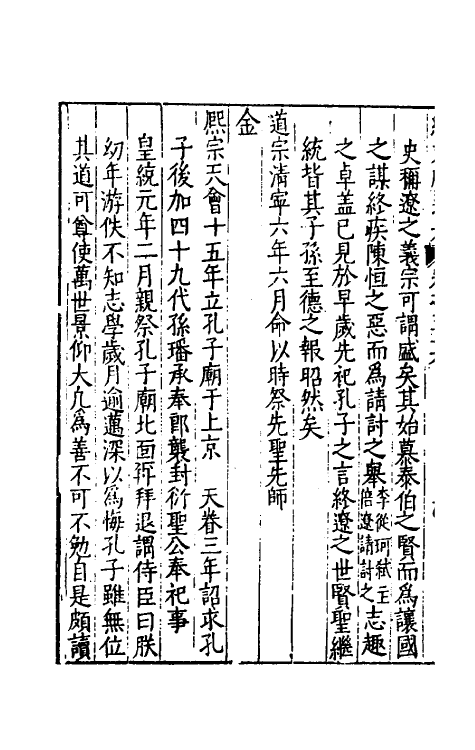 史稱遼之義宗可謂盛矣其始慕泰伯之賢而為讓國
之謀終疾陳恒之惡而為請討之舉李從珂弑主倍遼請討之志趣
之卓盖已見於早歲先祀孔子之言終遼之世賢聖繼
統皆其子孫至德之報昭然矣
道宗清寧六年六月命以時祭先聖先師
金
熙宗天會十五年立孔子廟于上京 天眷三年詔求孔
子後加四十九代孫璠承奉郎襲封衍聖公奉祀事
皇統元年二月親祭孔子廟北面再拜退謂侍臣曰朕
幼年游佚不知志學歲月逾邁深以為悔孔子雖無位
其道可尊使萬世景仰大凡為善不可不勉自是頗讀